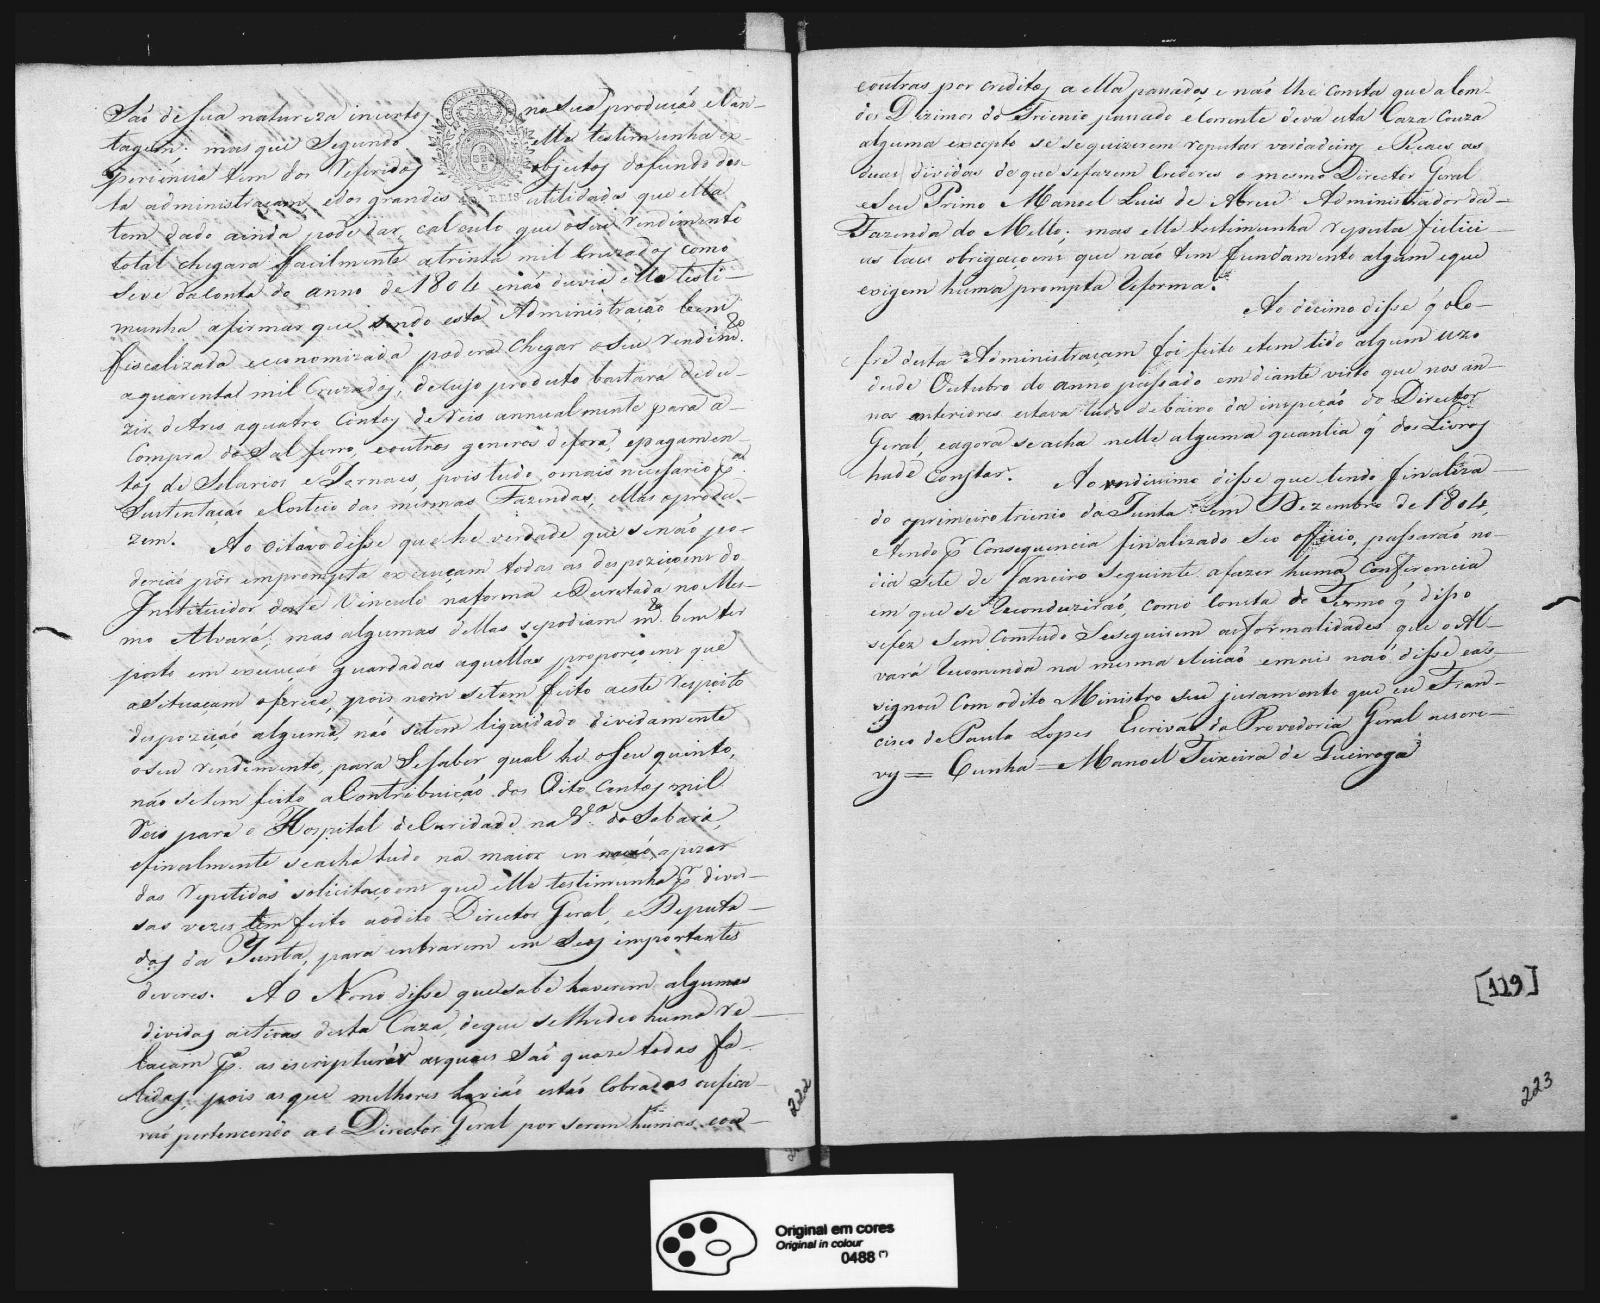 São de sua natureza incertos na sua produção e van-
tagem; mas que segundo elle testimunha ex-
periencia tem dos referidos objectos do fundo des-
ta administraçam, e dos grandes utilidades que ella
tem dado ainda pode dar, calculo que o seu rendimento
total chegara facilmente a trinta mil Cruzados como
se ve da Conta do anno de 1804 e não duvia elle testi-
munha afirmar que sendo esta Administração bem
fiscalizada economizada poderá chegar o seu rendim.to
a quarenta mil Cruzados, de cujo producto bastará dedu-
zir de tres a quatro Contos de reis annualmente para a
Compra do Sal ferro, e outros generos de fora, e pagamen-
tos de Selarios e Jornaes, pois tudo o mais necessario p.a
Sustentação e Costeio das mesmas Fazendas, ellas o produ-
zem. Ao Oitavo disse que he verdade que se não po-
derião pôr em prompta execuçam todas as despoziçoens do
Instituidor deste Vinculo na forma Decretada no Mes-
mo Alvará; mas algumas dellas se podiam m.to bem ter
posto em execução guardadas aquellas proporçoens que
a Situaçam oferece, pois nem se tem feito a este respeito
despozição alguma, não se tem liquidado devidamente
o seu rendimento, para se saber qual he o seu quinto,
não se tem feito a Contribuição dos Oito Contos mil
Reis para o Hospital de Caridade na V.a do Sabará,
e finalmente se acha tudo na maior apezar
das repetidas solicitaçoens que elle testimunha p.r diver-
sas vezes tem feito ao dito Director Geral, e Deputa-
dos da Junta, para entrarem em seos importantes
deveres. Ao Nono disse que sabe haverem algumas
dividas activas desta Caza, de que se lhe deo huma re-
laçam p.r as escripturas as quaes são quaze todas fa-
lidas, pois as que melhores havião estão Cobradas ou fica-
rão pertencendo ao Director Geral por serem humas, com-
222
contras por creditos a ella passados, e não lhe consta que alem
dos Dizimos do Trienio passado e Corrente deva esta Caza Couza
alguma excepto se se quizerem reputar verdadeiras e Reaes as
duas dividas de que se fazem Credores o mesmo Director Geral
e Seu Primo Manoel Luis de Abreu Administrador da
Fazenda do Mello; mas elle testimunha reputa fictici-
as taes obrigaçoens que não tem fundamento algum e que
exigem huma prompta reforma.
Ao decimo disse q̃ o Co-
fre desta Administraçam foi feito e tem tido algum uzo
desde Outubro do anno passado em diante visto que nos an-
nos anteriores estava tudo debaixo da inspeção do Director
Geral, e agora se acha nelle alguma quantia q̃ dos Livros
hade Constar. Ao undicimo disse que tendo finaliza-
do o primeiro trienio da Junta em Dezembro de 1804,
e tendo p.r Consequencia finalizado seo officio, passarão no
dia Sete de Janeiro Seguinte a fazer huma Conferencia
em que se reconduzirão, como Consta do Termo q̃ disso
se fez Sem Comtudo Seseguirem as formalidades que o Al-
vará recomenda na mesma eleição e mais não disse e as-
signou Com o dito Ministro seu juramento que eu Fran-
cisco de Paula Lopes Escrivão da Provedoria Geral o escre-
vy = Cunha = Manoel Teixeira de Queiroga
[119]
223
Original em cores
Original in colour
0488 (*)